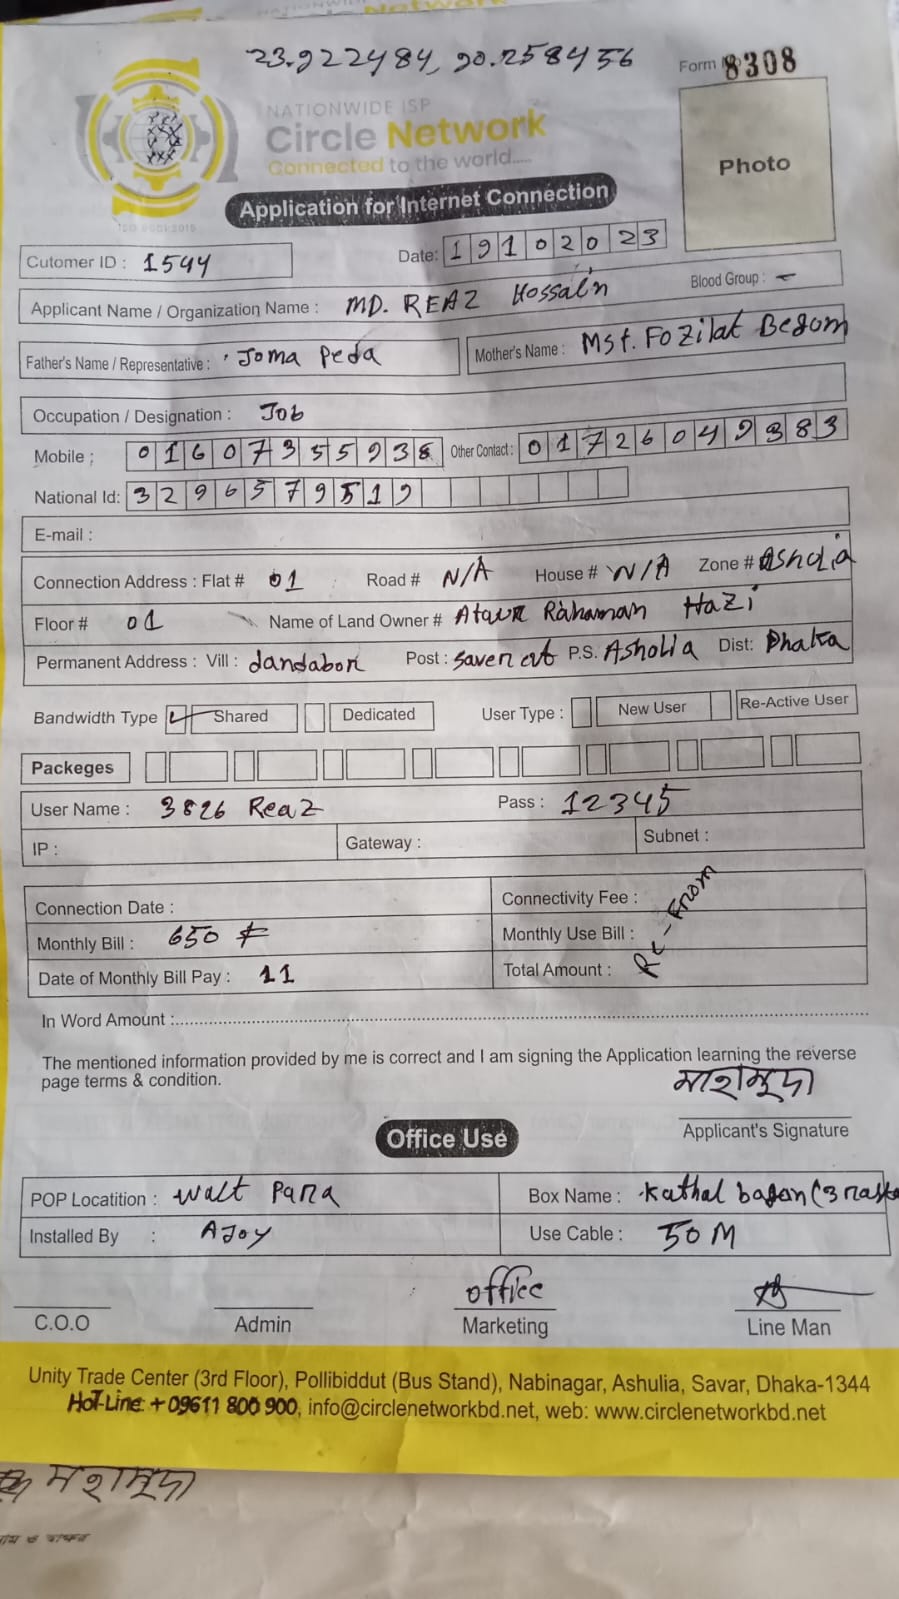 23.922484, 90.258456
Form 8308
NATIONWIDE ISP
Circle Network
Connected to the world.....
ISO 9001:2015
Photo
Application for Internet Connection
Cutomer ID : 1544
Date: 19102023
Applicant Name / Organization Name : MD. REAZ Hossain
Blood Group : -
Father's Name / Representative : Joma Peda
Mother's Name : Mst. Fozilat Begom
Occupation / Designation : Job
Mobile : 01607355938
Other Contact : 01726049383
National Id: 3296579519
E-mail :
Connection Address : Flat # 01 Road # N/A House # N/A Zone # Asholia
Floor # 01 Name of Land Owner # Ataur Rahaman Hazi
Permanent Address : Vill : dandabori Post : P.S. Asholia Dist: Dhaka
Bandwidth Type ✓ Shared Dedicated User Type : New User Re-Active User
Packeges
User Name : 3826 Reaz Pass : 12345
IP : Gateway : Subnet :
Connection Date : Connectivity Fee :
Monthly Bill : 650 Monthly Use Bill :
Date of Monthly Bill Pay : 11 Total Amount :
Re-From
In Word Amount :
The mentioned information provided by me is correct and I am signing the Application learning the reverse
page terms & condition.
মাহামুদা
Applicant's Signature
Office Use
POP Locatition : Walt Para Box Name : Kathal bagan (3
Installed By : AJoy Use Cable : 50M
office
C.O.O Admin Marketing Line Man
Unity Trade Center (3rd Floor), Pollibiddut (Bus Stand), Nabinagar, Ashulia, Savar, Dhaka-1344
Hot-Line: +09611 800 900, info@circlenetworkbd.net, web: www.circlenetworkbd.net
মহামুদা